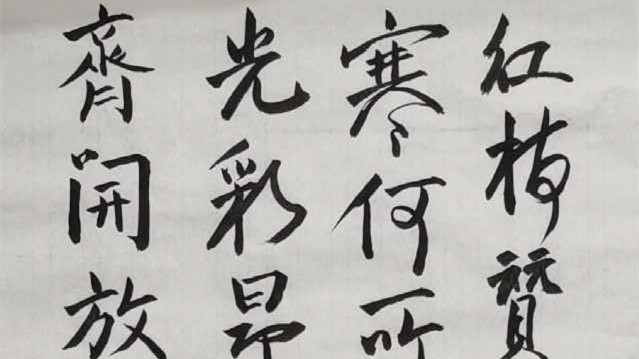 红梅贊
寒何所
光彩昂
齊開放